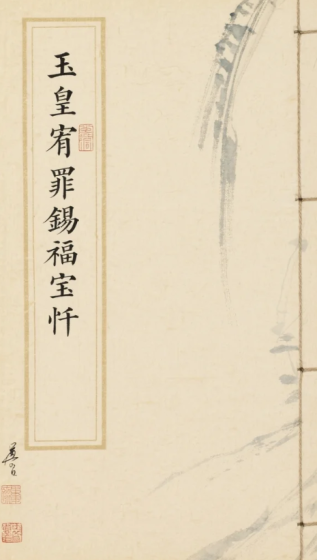 玉皇宥罪錫福宝忏